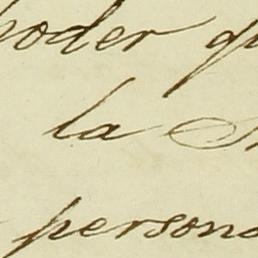 poder qu
la S
persona